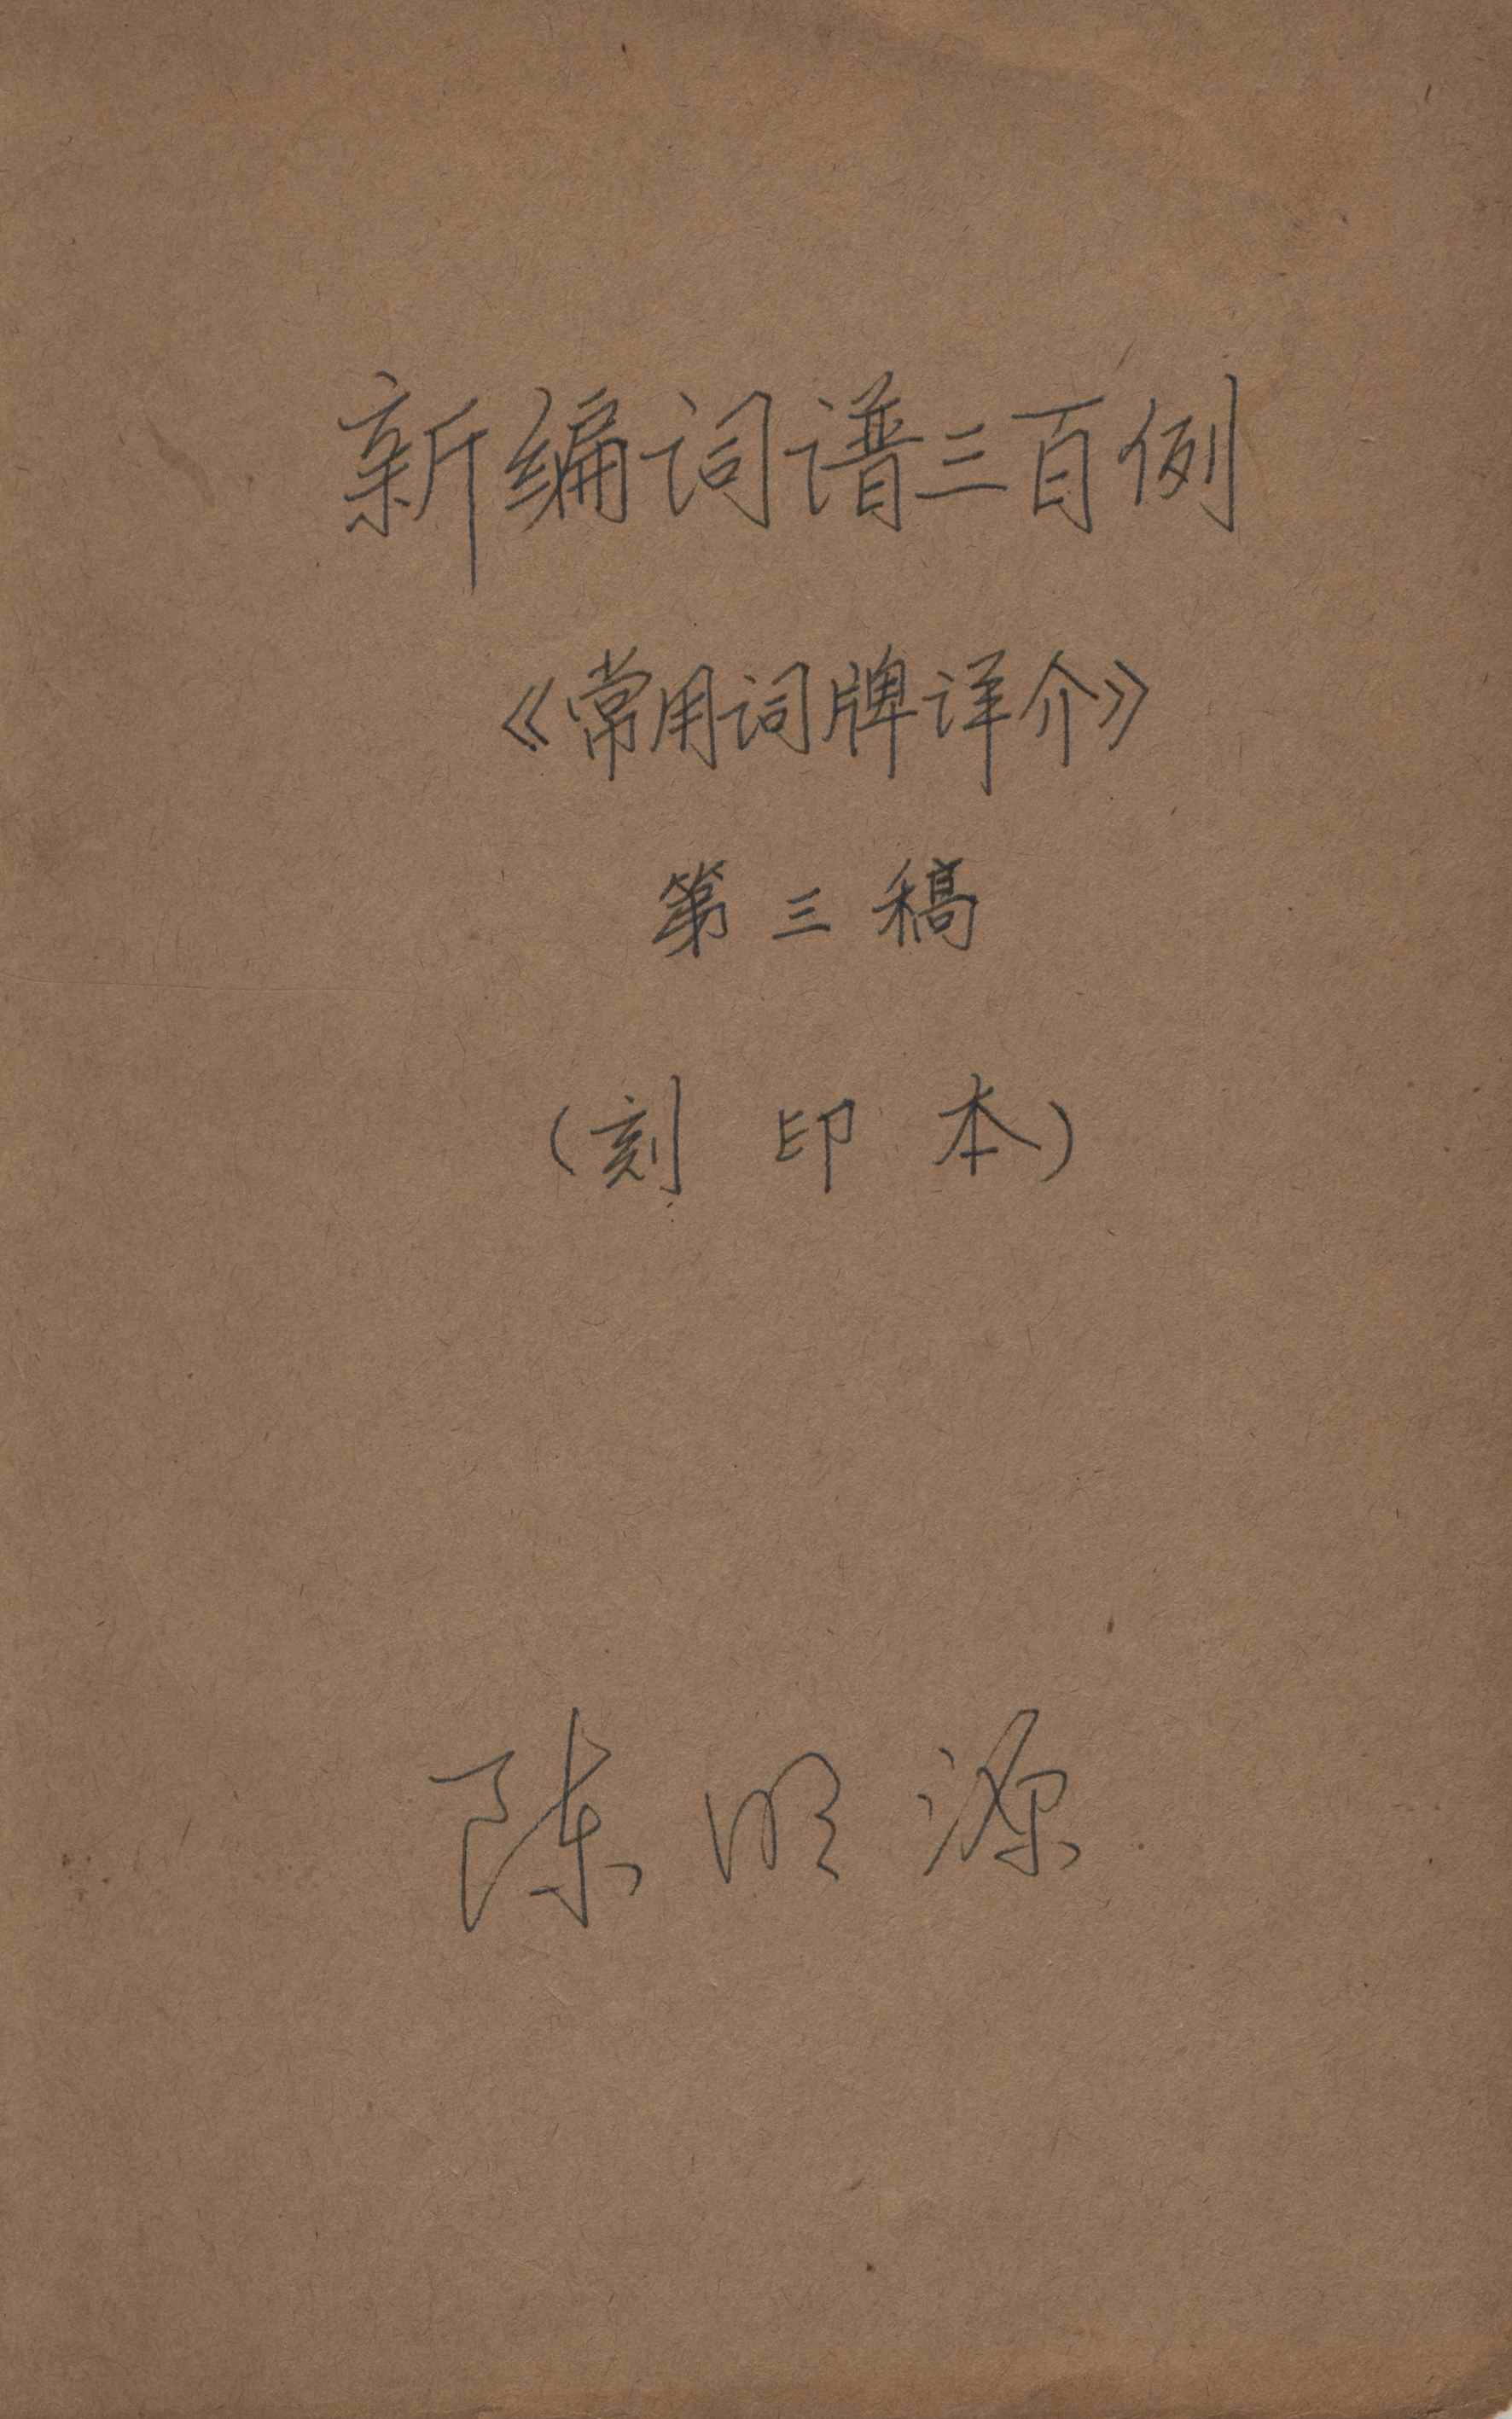 新编词谱三百例
《常用词牌详介》
第三稿
(刻印本)
陈明源